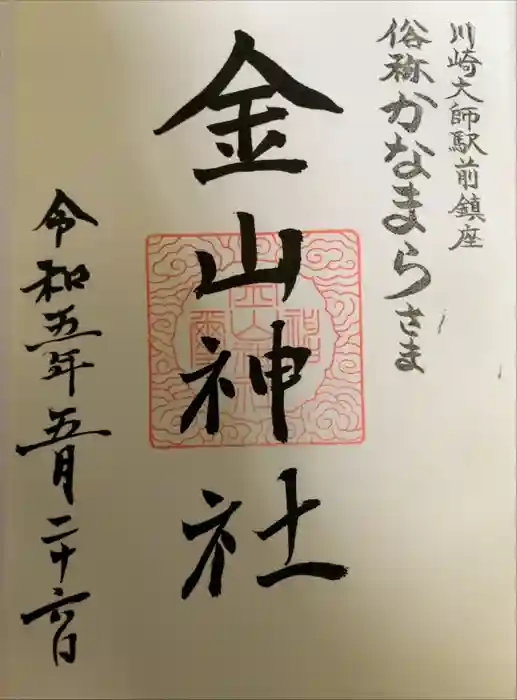 川崎大師駅前鎮座
俗称かなまらさま
金山神社
令和五年五月二十六日